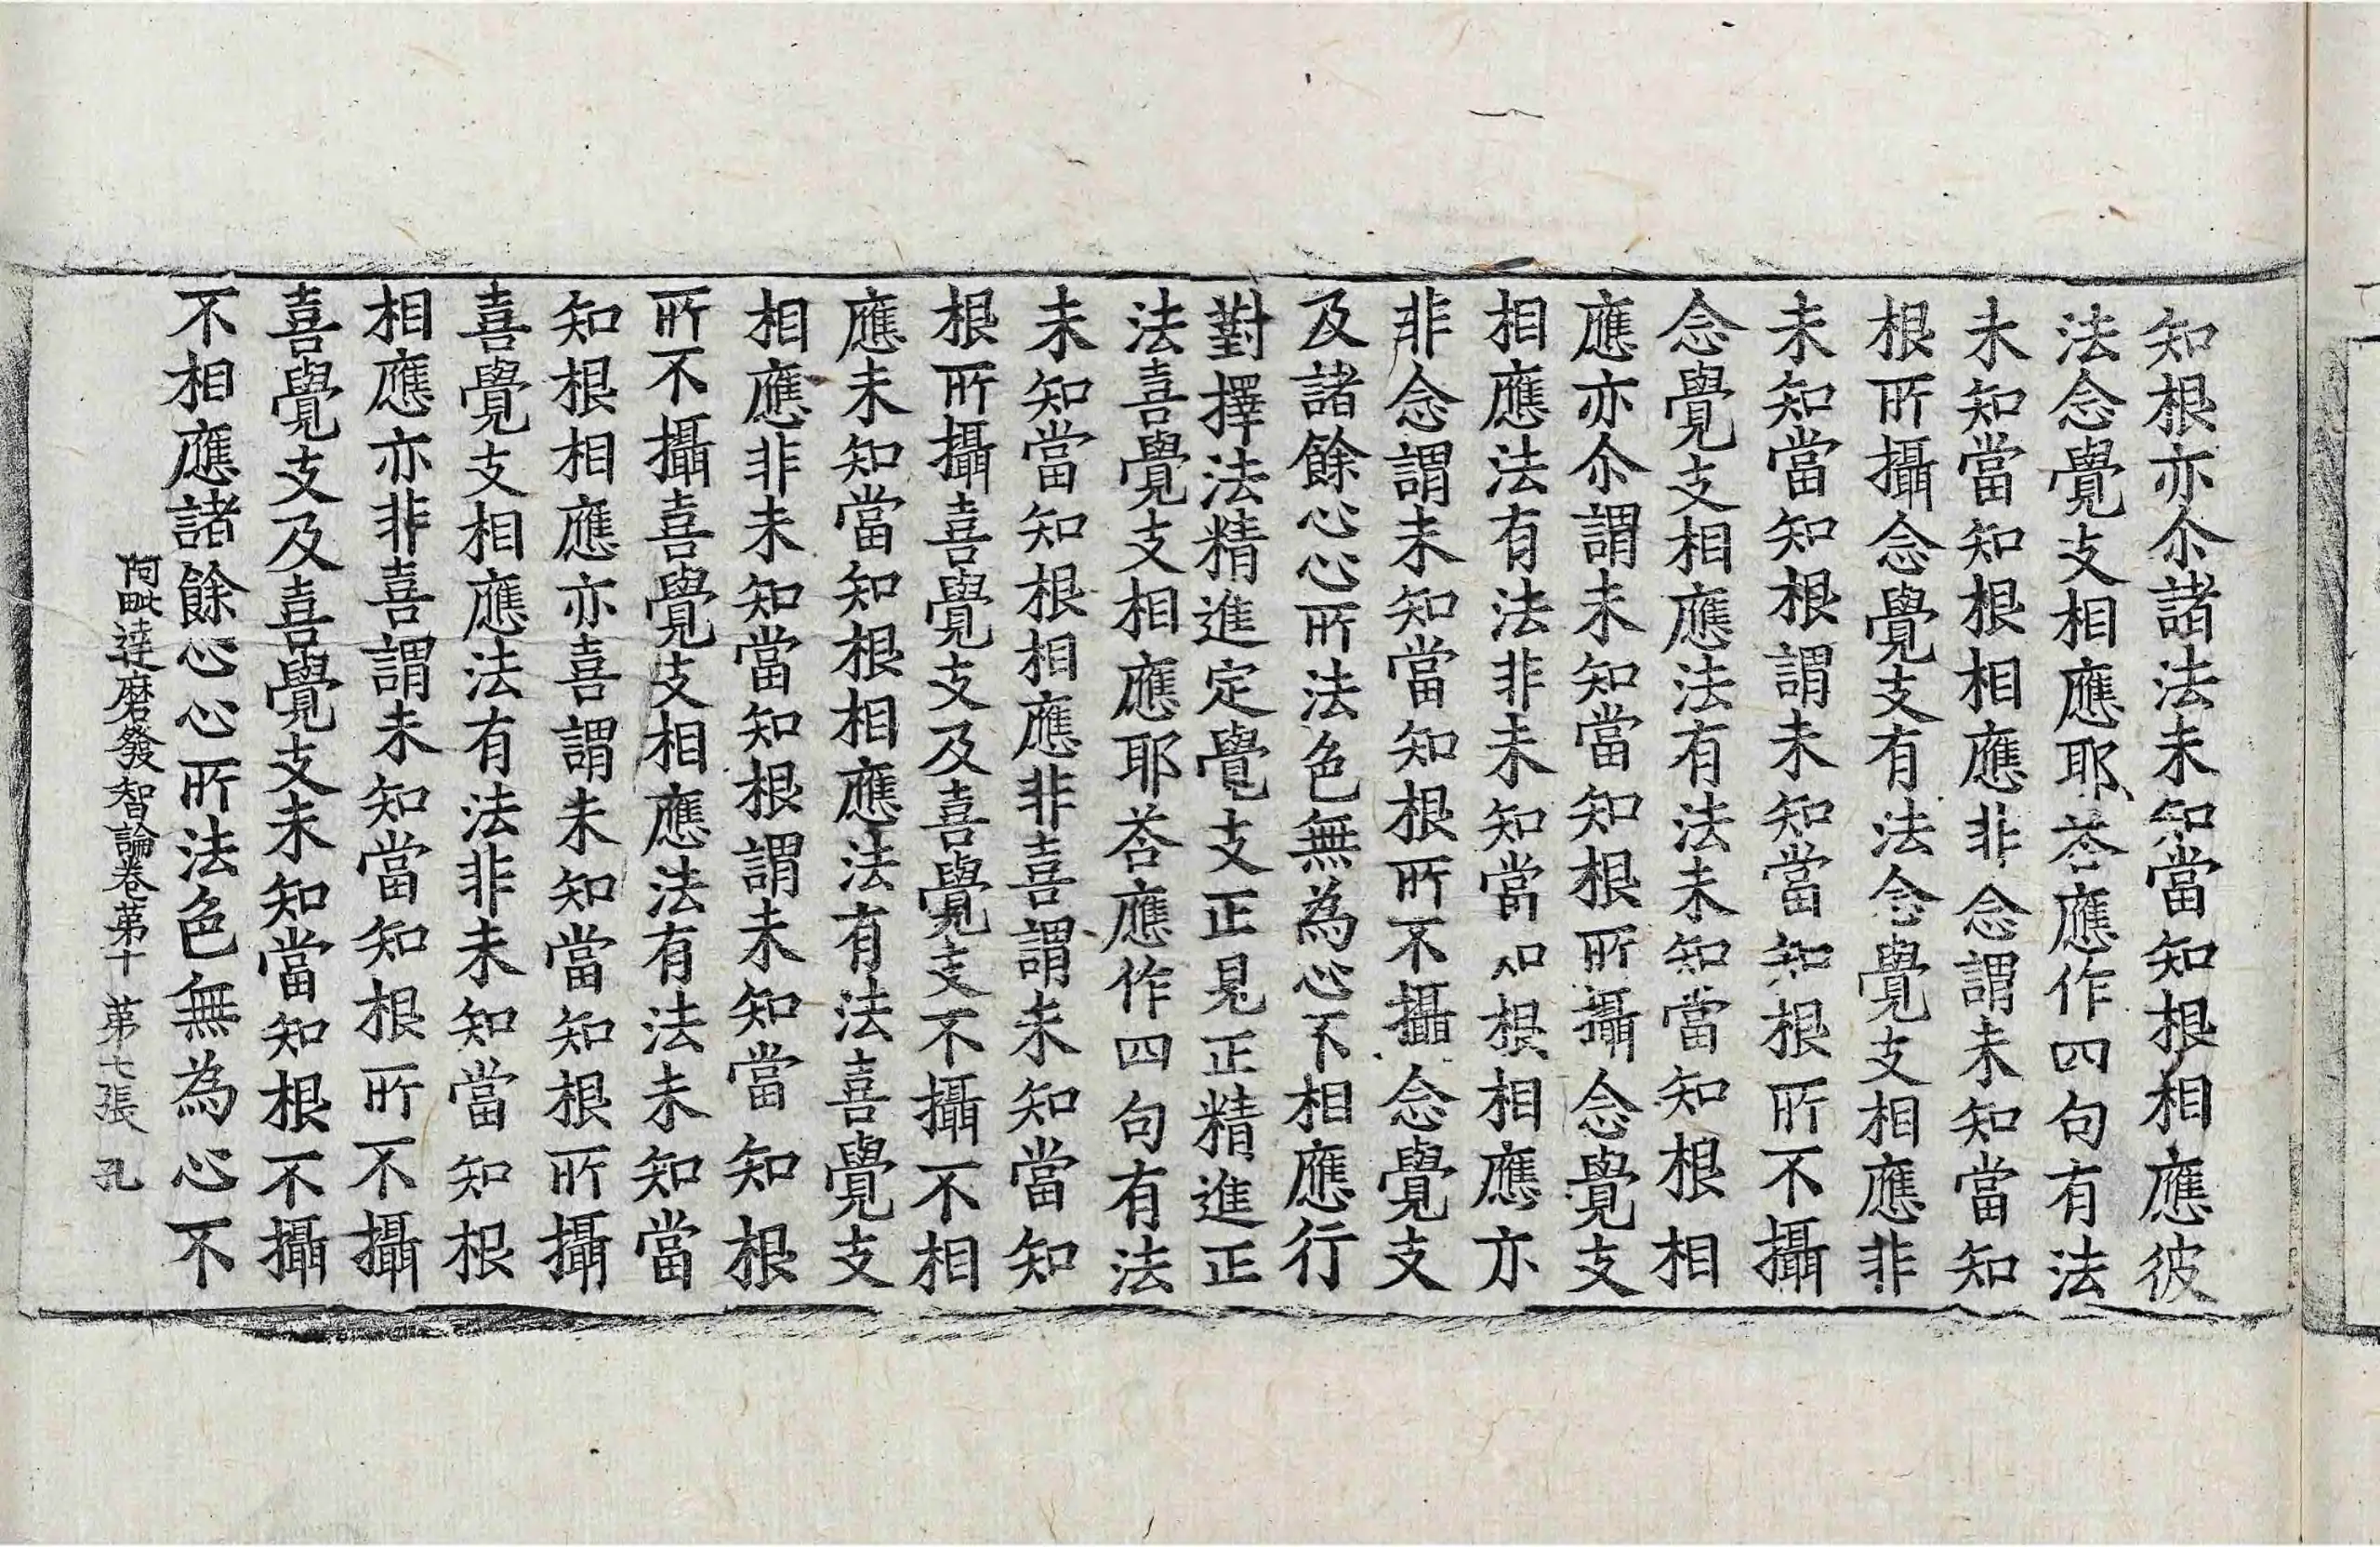 知根亦尒諸法未知當知根相應彼
法念覺支相應耶荅應作四句有法
未知當知根相應非念謂未知當知
根所攝念覺支有法念覺支相應非
未知當知根謂未知當知根所不攝
念覺支相應法有法未知當知根相
應亦尒謂未知當知根所攝念覺支
相應法有法非未知當知根相應亦
非念謂未知當知根所不攝念覺支
及諸餘心心所法色無為心不相應行
對擇法精進定覺支正見正精進正
法喜覺支相應耶荅應作四句有法
未知當知根相應非喜謂未知當知
根所攝喜覺支及喜覺支不攝不相
應未知當知根相應法有法喜覺支
相應非未知當知根謂未知當知根
所不攝喜覺支相應法有法未知當
知根相應亦喜謂未知當知根所攝
喜覺支相應法有法非未知當知根
相應亦非喜謂未知當知根所不攝
喜覺支及喜覺支未知當知根不攝
不相應諸餘心心所法色無為心不
阿毗達磨發智論卷苐十 苐七張 孔